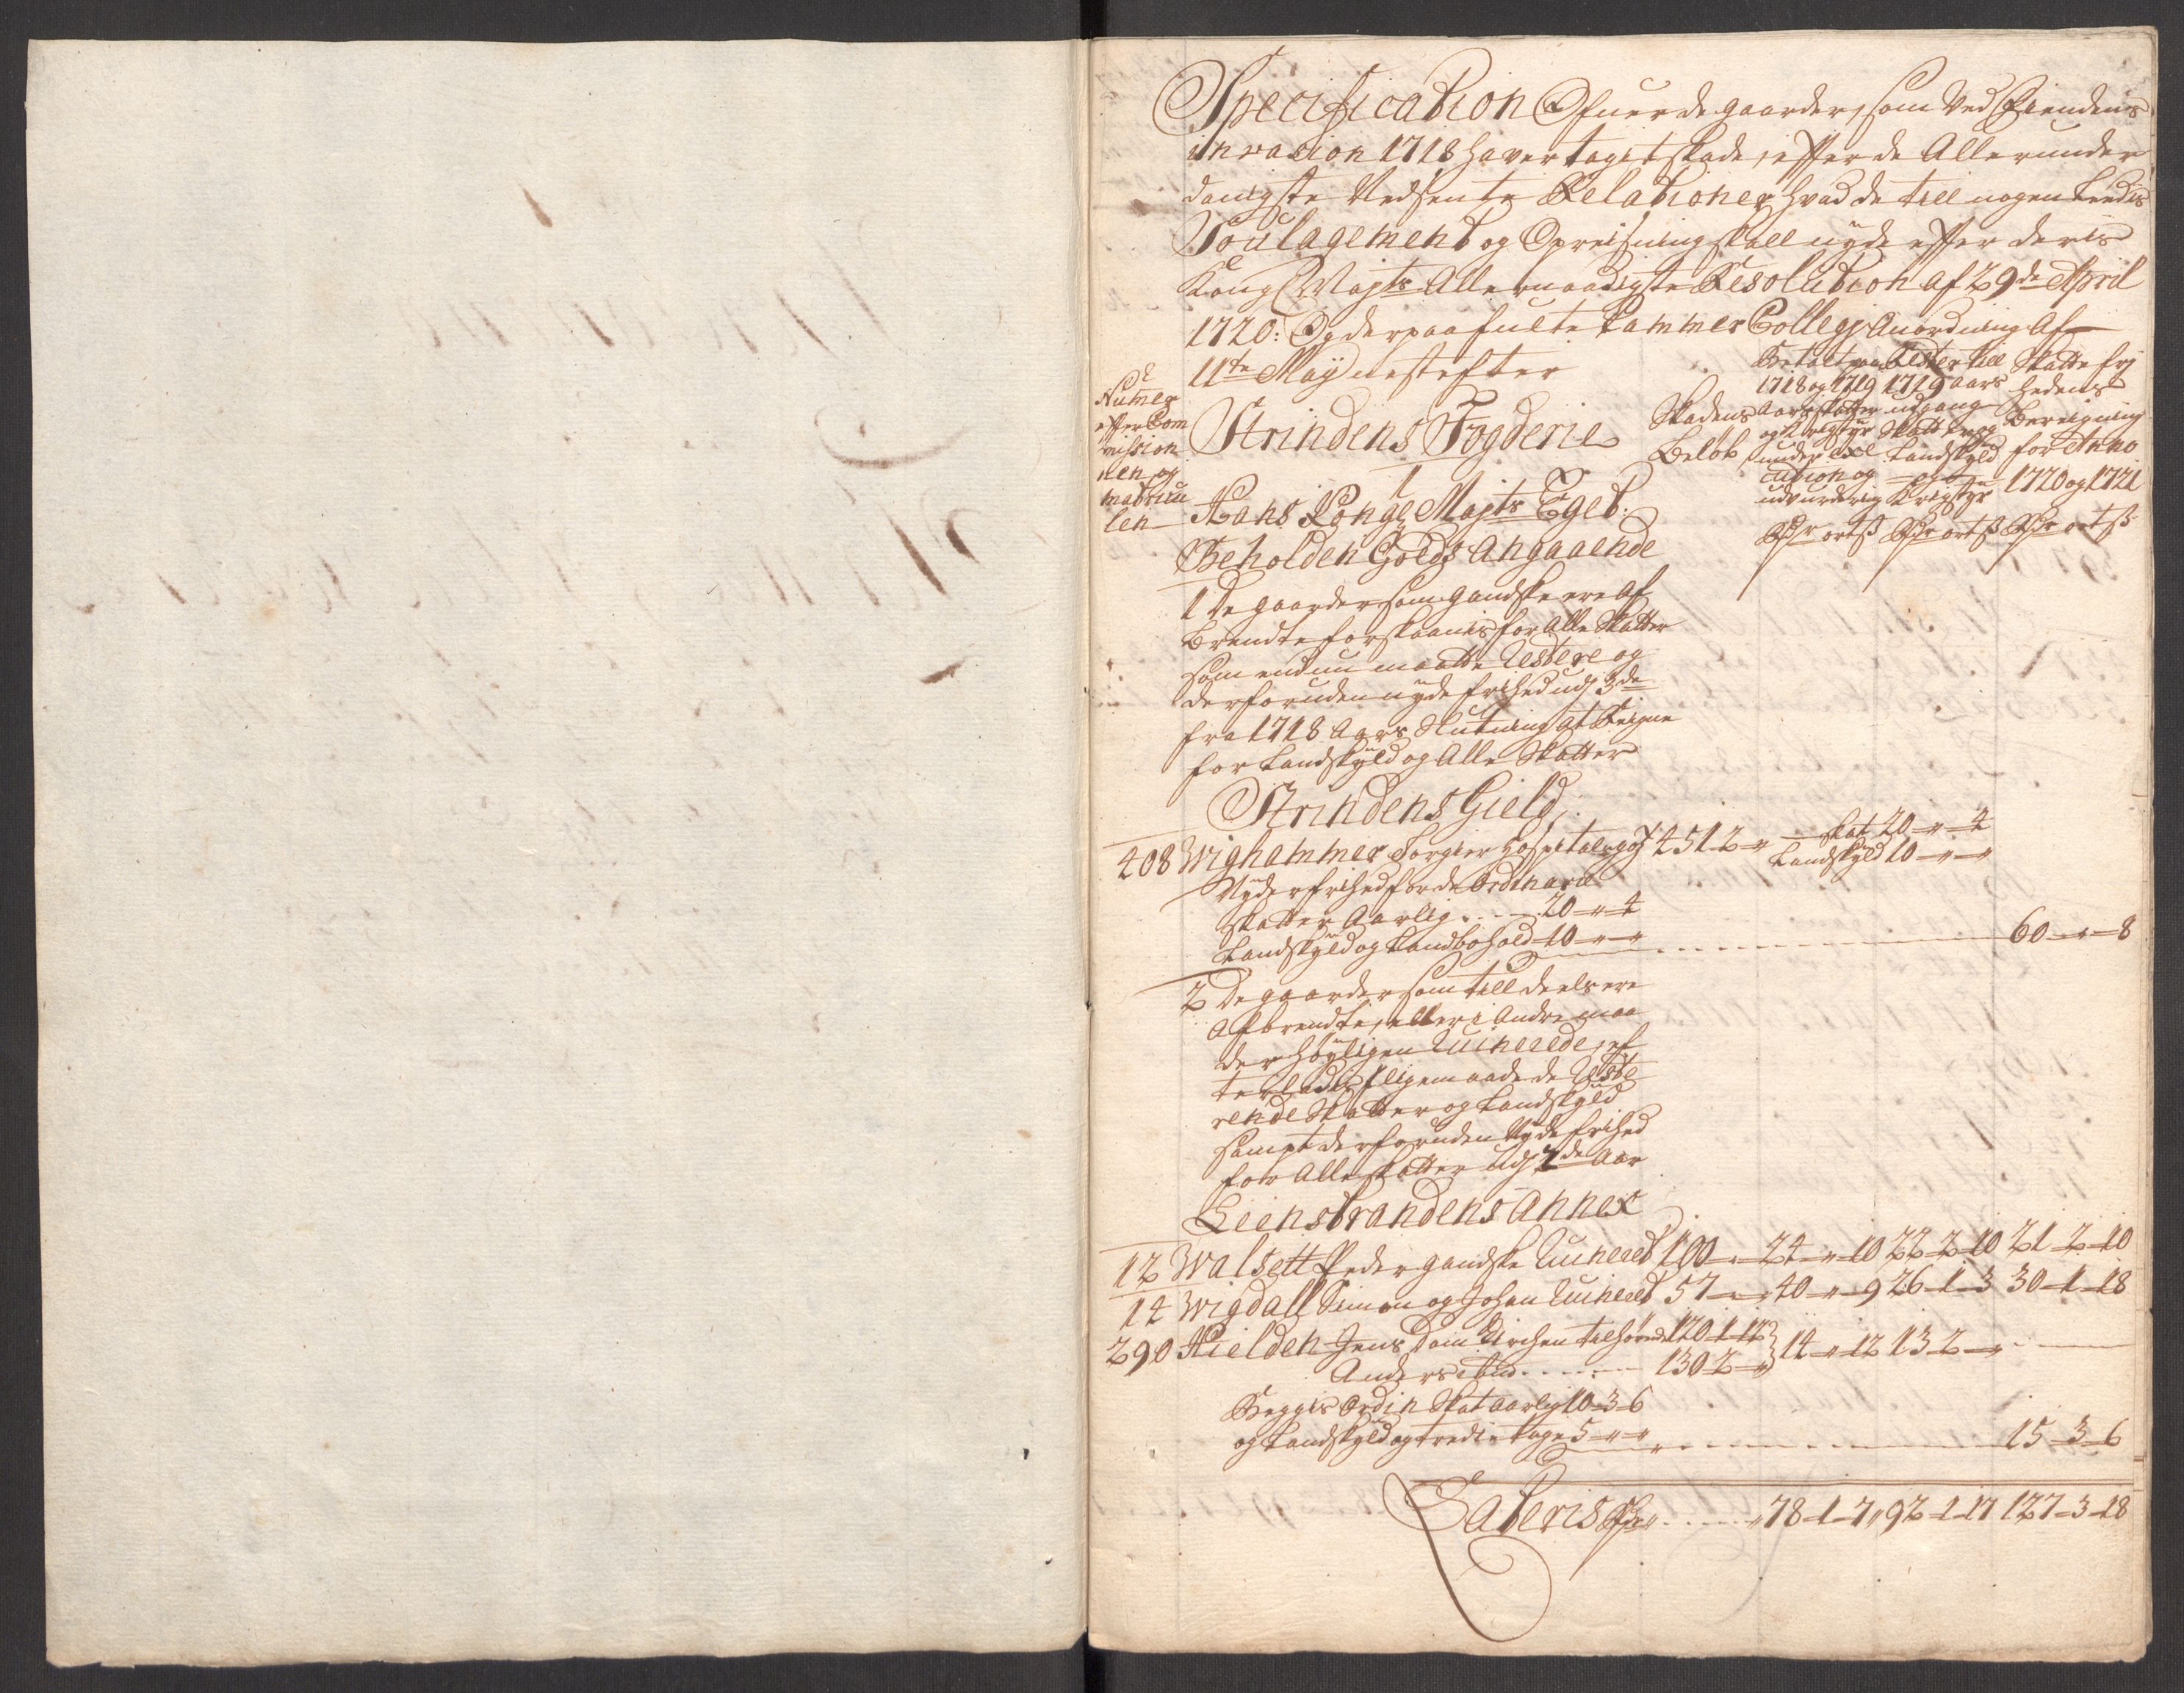 Specification Ofuer de gaarder, som Ved Fiendens
invasion 1718 haver taget skade, effter de Allerunder
danigste Nedsente Relationer hvad de till nogen Leedis
Soulagement og Opreisning skall nyde effter deris
Kongl Mayts Allernaadigste Resolution af 29de April
1720: Og derpaa fulte Cammer Collegj Anordning Af
11te Maij nestefter
Numer
effter Com
mission
nen og
matricu
len
Strindens Fogderie
Skadens
Beløb
Betalt paa
1718 og 1719
Aars skatter
og Krigstyr
under Exe
cution og
udvurdering
Rester till
1719 aars
udgang
Skatter og
Landskyld
og
Krigstyr
Skatte frj
hedens
Bereigning
for Anno
1720 og 1721
Rdr ort ß Rdr ort ß Rdr ort ß
1
Hans Kongl Mayts Eget
Beholden Gods Angaaende
1 De gaarder som gandske ere Af
Brendte forskaanis for Alle Skatter
som endnu maatte Restere og
derforuden nyde frihed udj 3de
fra 1718 Aars Slutning At Reigne
for Landskyld og Alle Skatter
Strindens Gield
408 Wighammer Torgier Hospitalsgodz 451-2-" Skat 20-"-4
Landskyld 10-"-"
Nyder frihed for de Ordinaire
skatter Aarlig 20-"-4
Landskyld og Landbohold 10-"-" 60-"-8
2 De gaarder som till deels ere
Afbrendte, eller i Andre maa
der høyligen Ruinerede, ef
terladis ligemaade de Reste
rende Skatter og Landskyld
sampt derforuden Nyde frihed
for Alle skatter udj 2de Aar
Leenstrandens Annex
12 Walsett Peder gandske Ruineret 100-"- 24-"-10 22-2-10 21-2-10
14 Wigdall Simon og Johan Ruineret 57-"- 40-"-9 26-1-3 30-1-18
290 Hielden Jens Dom Kirchen tilhørende 120-1-12 14-"-12 13-2-"
Anders ibid 130-2-"
Begges Ordin Skat aarlig 10-3-6
og Landskyld og tredie tage 5-"-" 15-3-6
Lateris Rdr 78-1-7 92-1-17 127-3-18